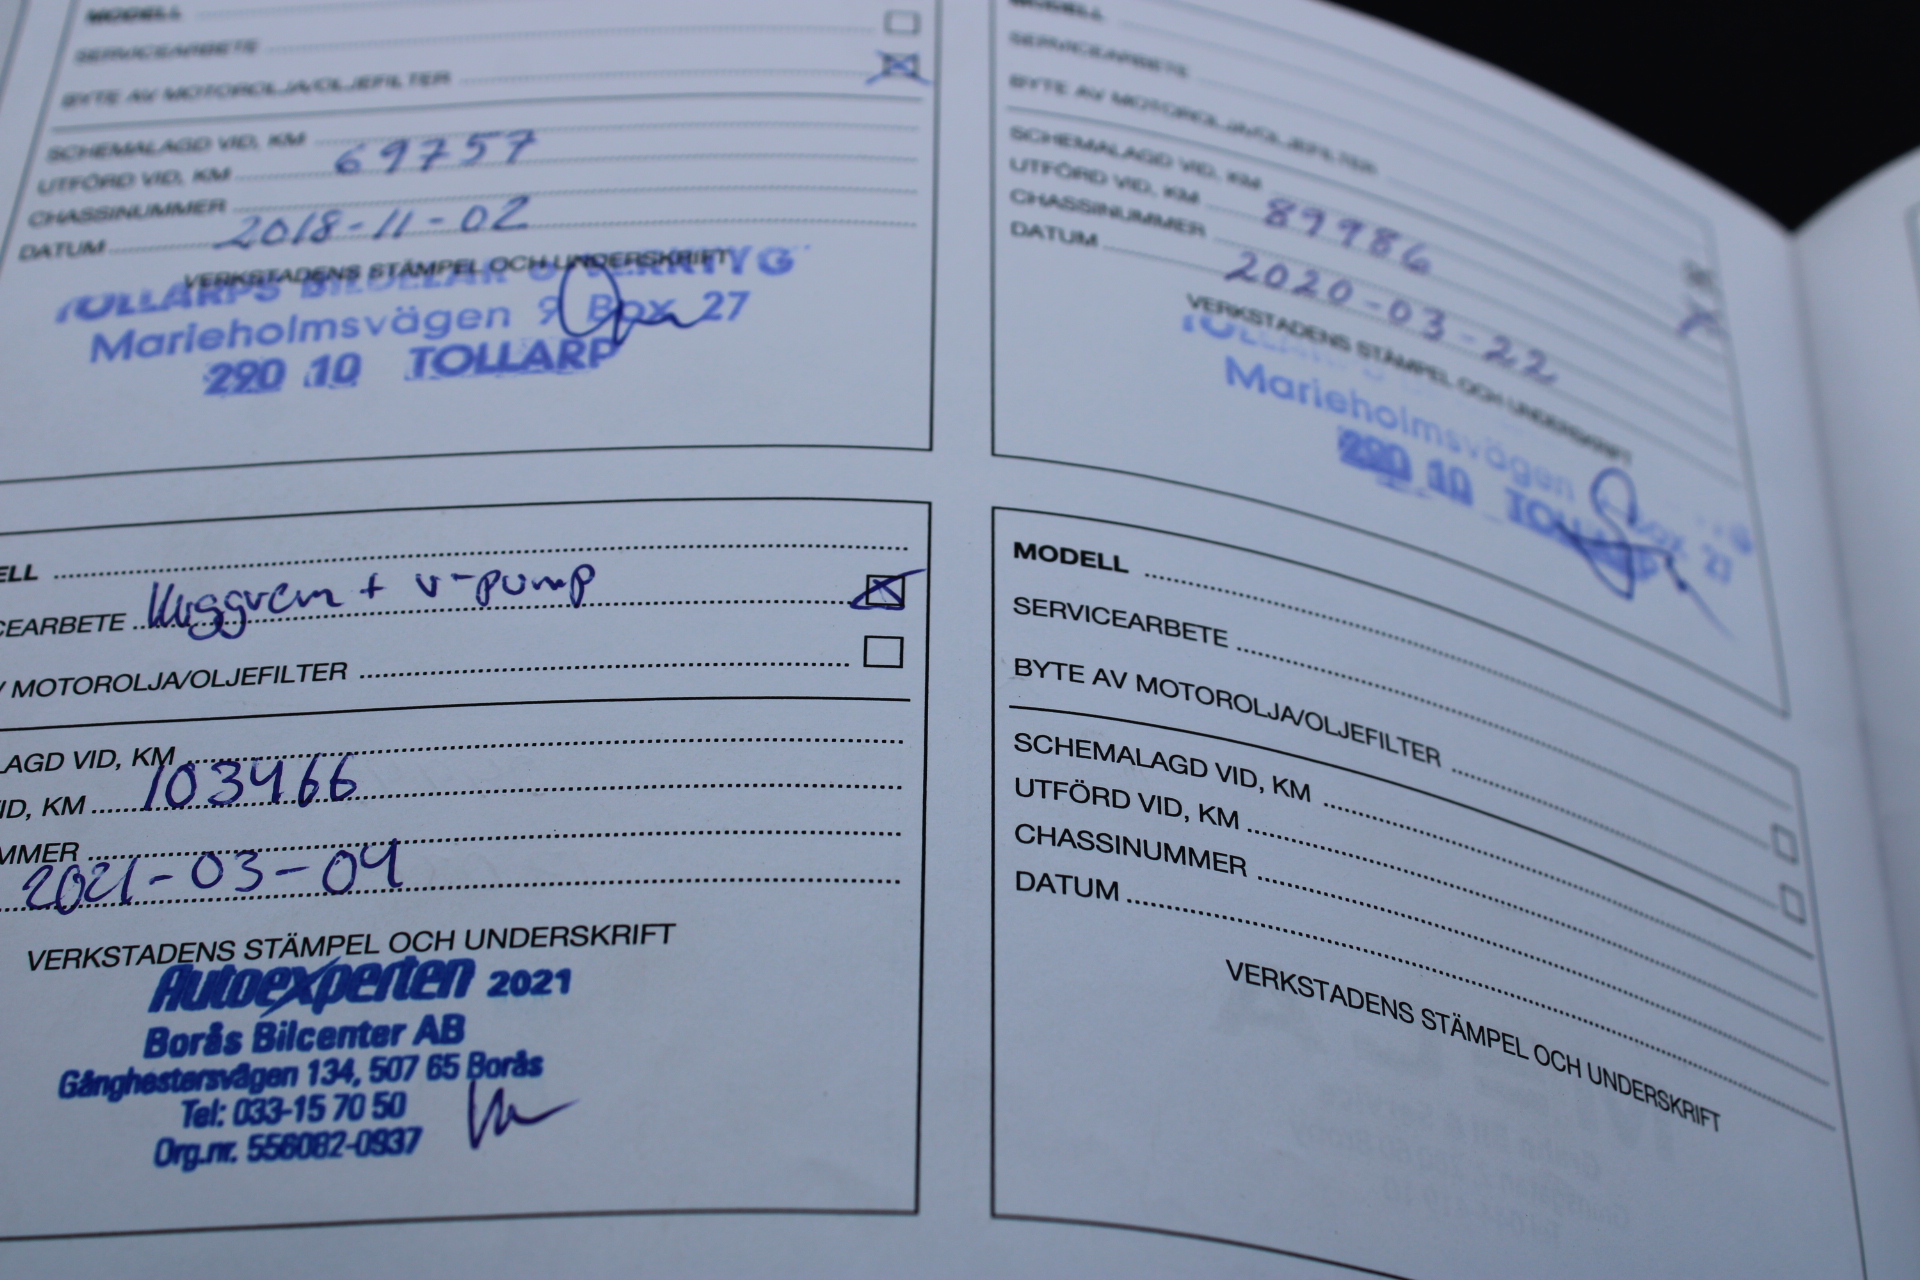 MODELL
SERVICEARBETE
BYTE AV MOTOROLJA/OLJEFILTER
SCHEMALAGD VID, KM
UTFÖRD VID, KM 69757
CHASSINUMMER
DATUM 2018-11-02
VERKSTADENS STÄMPEL OCH UNDERSKRIFT
TOLLARPS BILDELAR & VERKTYG
Marieholmsvägen 9 Box 27
290 10 TOLLARP
MODELL
SERVICEARBETE
BYTE AV MOTOROLJA/OLJEFILTER
SCHEMALAGD VID, KM
UTFÖRD VID, KM 89986
CHASSINUMMER
DATUM 2020-03-22
VERKSTADENS STÄMPEL OCH UNDERSKRIFT
Marieholmsvägen Box 27
290 10 TOLLARP
ELL
CEARBETE Kuggrem + v-pump
V MOTOROLJA/OLJEFILTER
LAGD VID, KM
VID, KM 103466
MMER
2021-03-04
VERKSTADENS STÄMPEL OCH UNDERSKRIFT
Autoexperten 2021
Borås Bilcenter AB
Gånghestersvägen 134, 507 65 Borås
Tel: 033-15 70 50
Org.nr. 556082-0937
MODELL
SERVICEARBETE
BYTE AV MOTOROLJA/OLJEFILTER
SCHEMALAGD VID, KM
UTFÖRD VID, KM
CHASSINUMMER
DATUM
VERKSTADENS STÄMPEL OCH UNDERSKRIFT